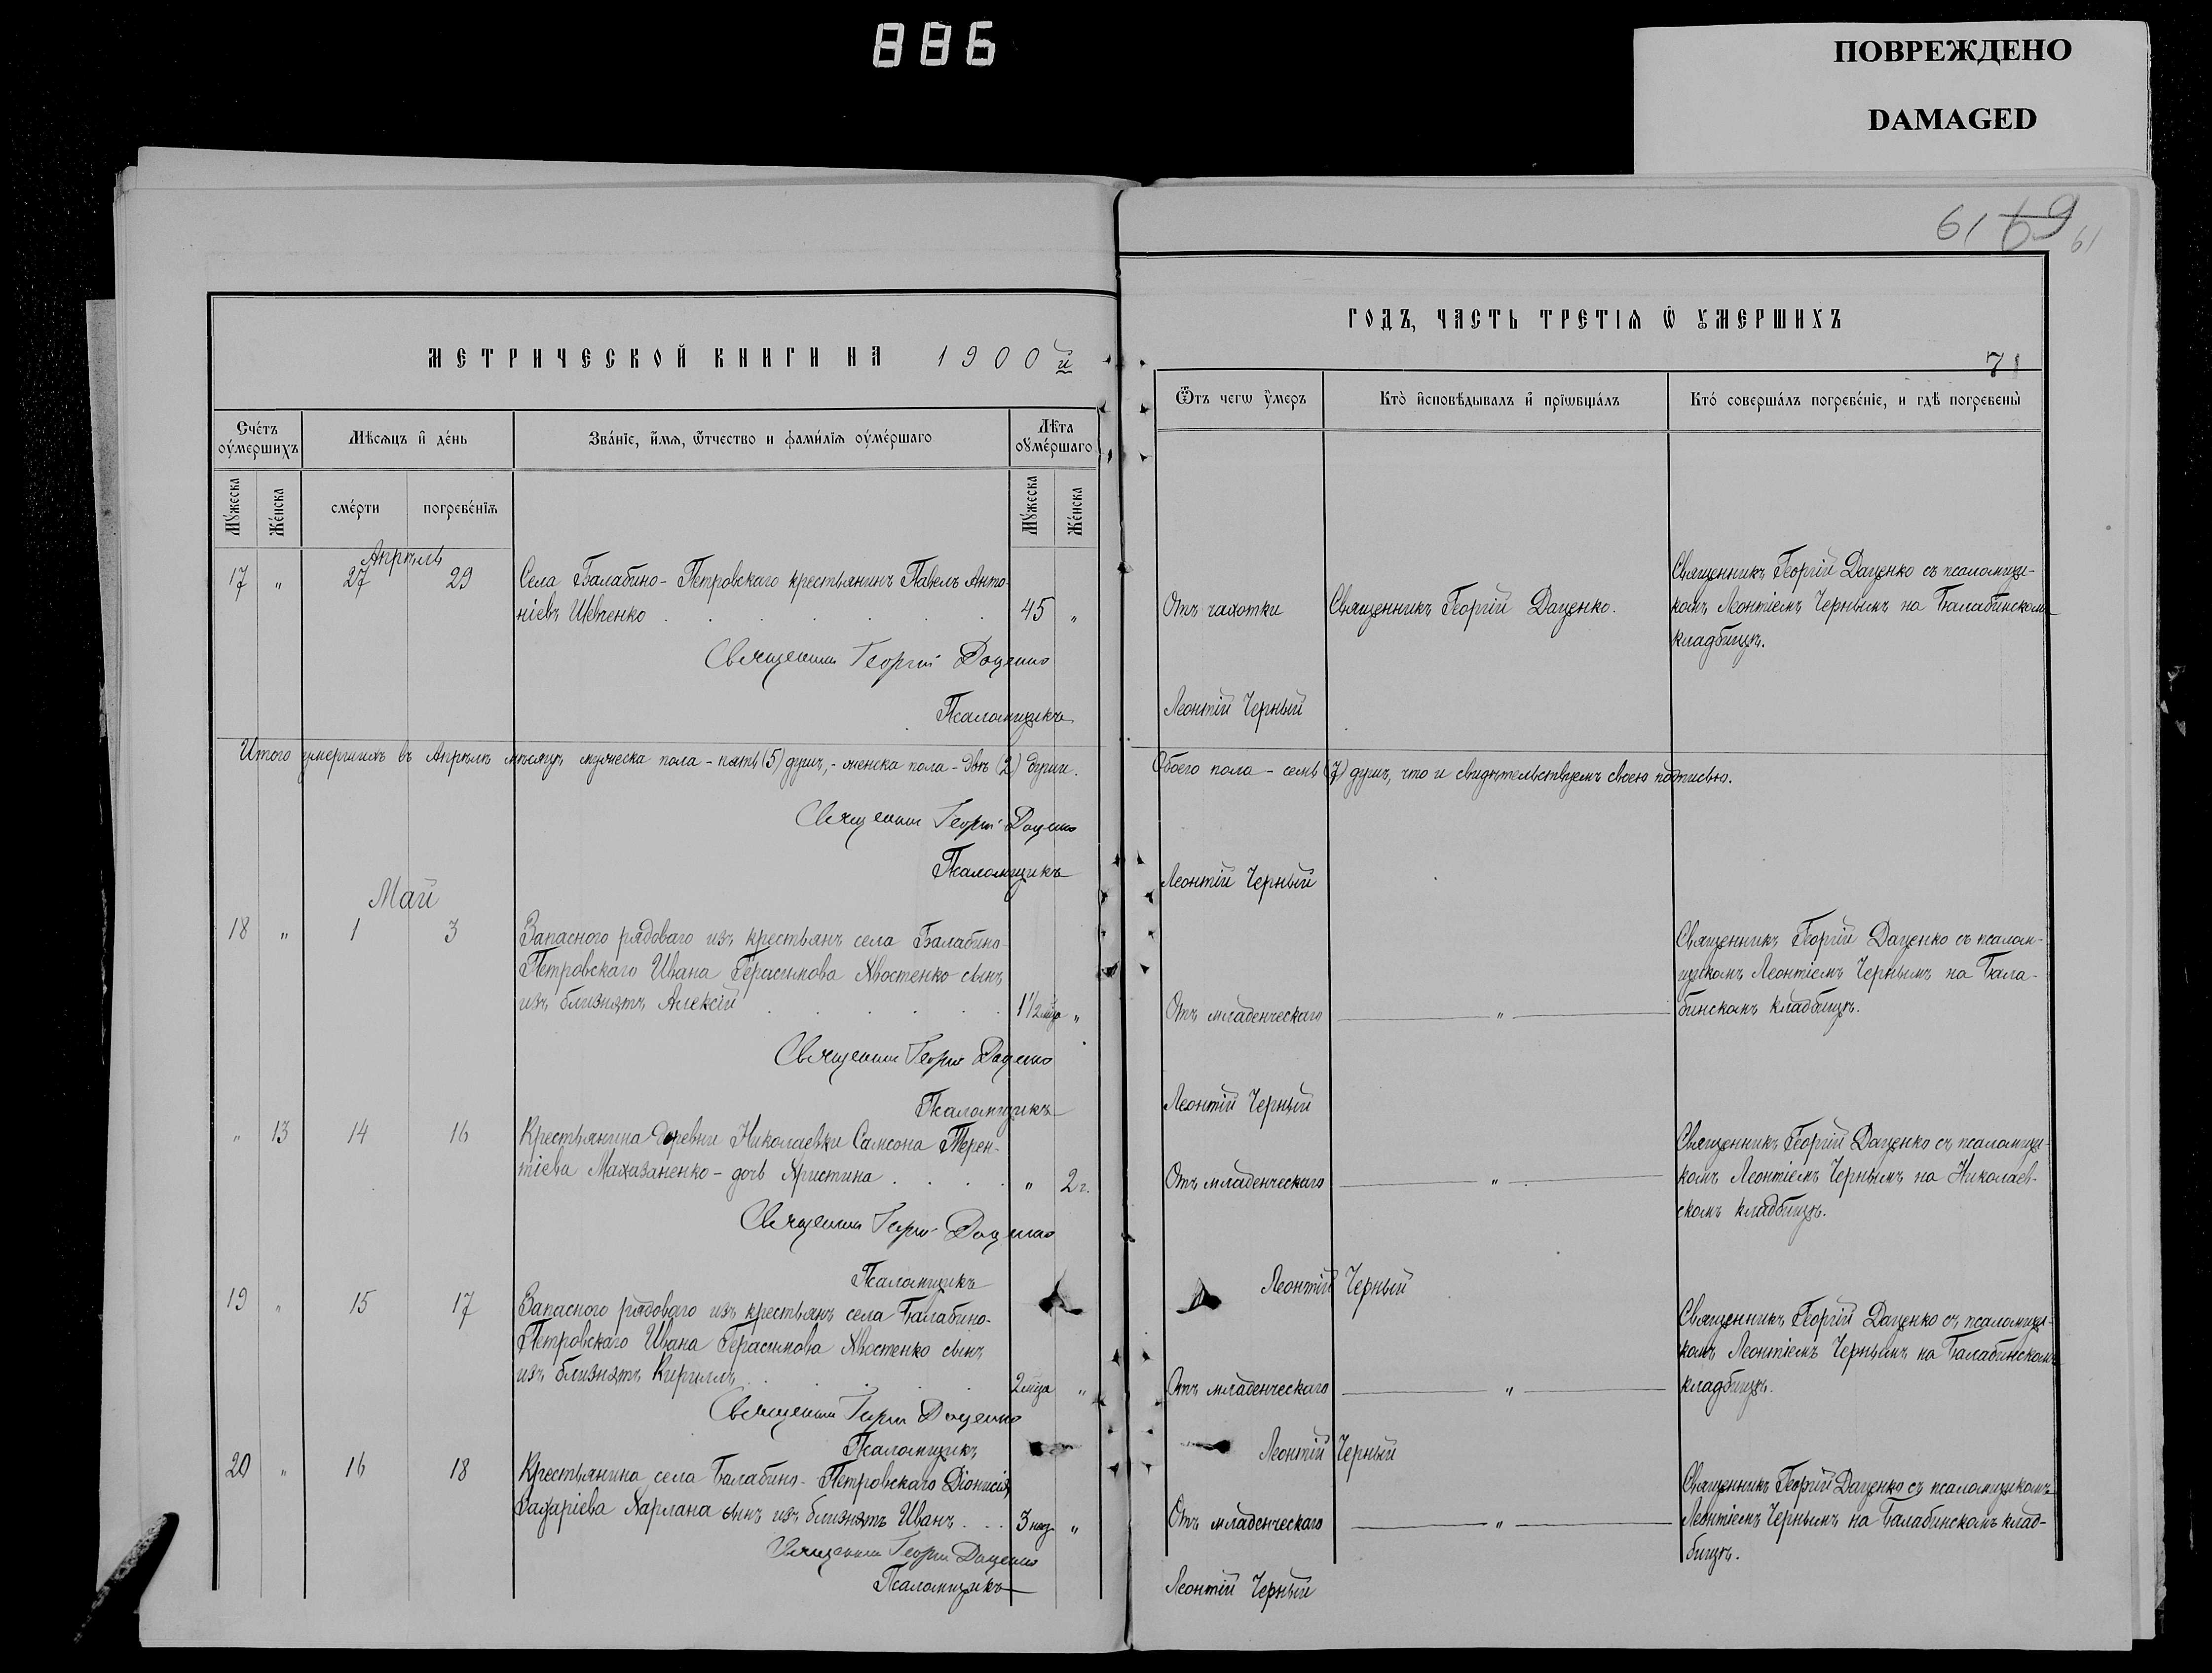 886
ПОВРЕЖДЕНО
DAMAGED
61 69 61
МЕТРИЧЕСКОЙ КНИГИ НА 1900й
Счетъ оумершихъ
Мѣсяцъ и день
Званіе, имя, отчество и фамилія оумершаго
Лѣта оумершаго
Мужеска
Женска
смерти
погребенія
Мужеска
Женска
Апрѣль
17 " 27 29 Села Балабино-Петровскаго крестьянинъ Павелъ Анто-
ніевъ Шевченко 45 "
Священникъ Георгій Даценко
Псаломщикъ
Итого умершихъ въ Апрѣлѣ мѣсяцѣ мужеска пола - пять (5) душъ, - женска пола - двѣ (2) души.
Священникъ Георгій Даценко
Псаломщикъ
Май
18 " 1 3 Запаснаго рядоваго изъ крестьянъ села Балабино-
Петровскаго Ивана Герасимова Хвостенко сынъ
изъ близнятъ Алексій 1 1/2 мца "
Священникъ Георгій Даценко
Псаломщикъ
" 13 14 16 Крестьянина деревни Николаевки Самсона Терен-
тіева Махазаненко - дочь Христина " 2 г.
Священникъ Георгій Даценко
Псаломщикъ
19 " 15 17 Запаснаго рядоваго изъ крестьянъ села Балабино-
Петровскаго Ивана Герасимова Хвостенко сынъ
изъ близнятъ Кириллъ 2 мца "
Священникъ Георгій Даценко
Псаломщикъ
20 " 16 18 Крестьянина села Балабино-Петровскаго Діонисія
Захаріева Харлана сынъ изъ близнятъ Иванъ 3 нед. "
Священникъ Георгій Даценко
Псаломщикъ
ГОДЪ, ЧАСТЬ ТРЕТІЯ Ѡ УМЕРШИХЪ
7
Ѿтъ чегѡ умеръ
Кто исповѣдывалъ и пріѡбщалъ
Кто совершалъ погребеніе, и гдѣ погребены
Отъ чахотки
Священникъ Георгій Даценко.
Священникъ Георгій Даценко съ псаломщи-
комъ Леонтіемъ Чернымъ на Балабинскомъ
кладбищѣ.
Леонтій Черный
Обоего пола - семь (7) душъ, что и свидѣтельствуемъ своею подписью.
Леонтій Черный
Отъ младенческаго "
Священникъ Георгій Даценко съ псалом-
щикомъ Леонтіемъ Чернымъ на Бала-
бинскомъ кладбищѣ.
Леонтій Черный
Отъ младенческаго "
Священникъ Георгій Даценко съ псаломщи-
комъ Леонтіемъ Чернымъ на Николаев-
скомъ кладбищѣ.
Леонтій Черный
Отъ младенческаго "
Священникъ Георгій Даценко съ псаломщи-
комъ Леонтіемъ Чернымъ на Балабинскомъ
кладбищѣ.
Леонтій Черный
Отъ младенческаго "
Священникъ Георгій Даценко съ псаломщикомъ
Леонтіемъ Чернымъ на Балабинскомъ клад-
бищѣ.
Леонтій Черный